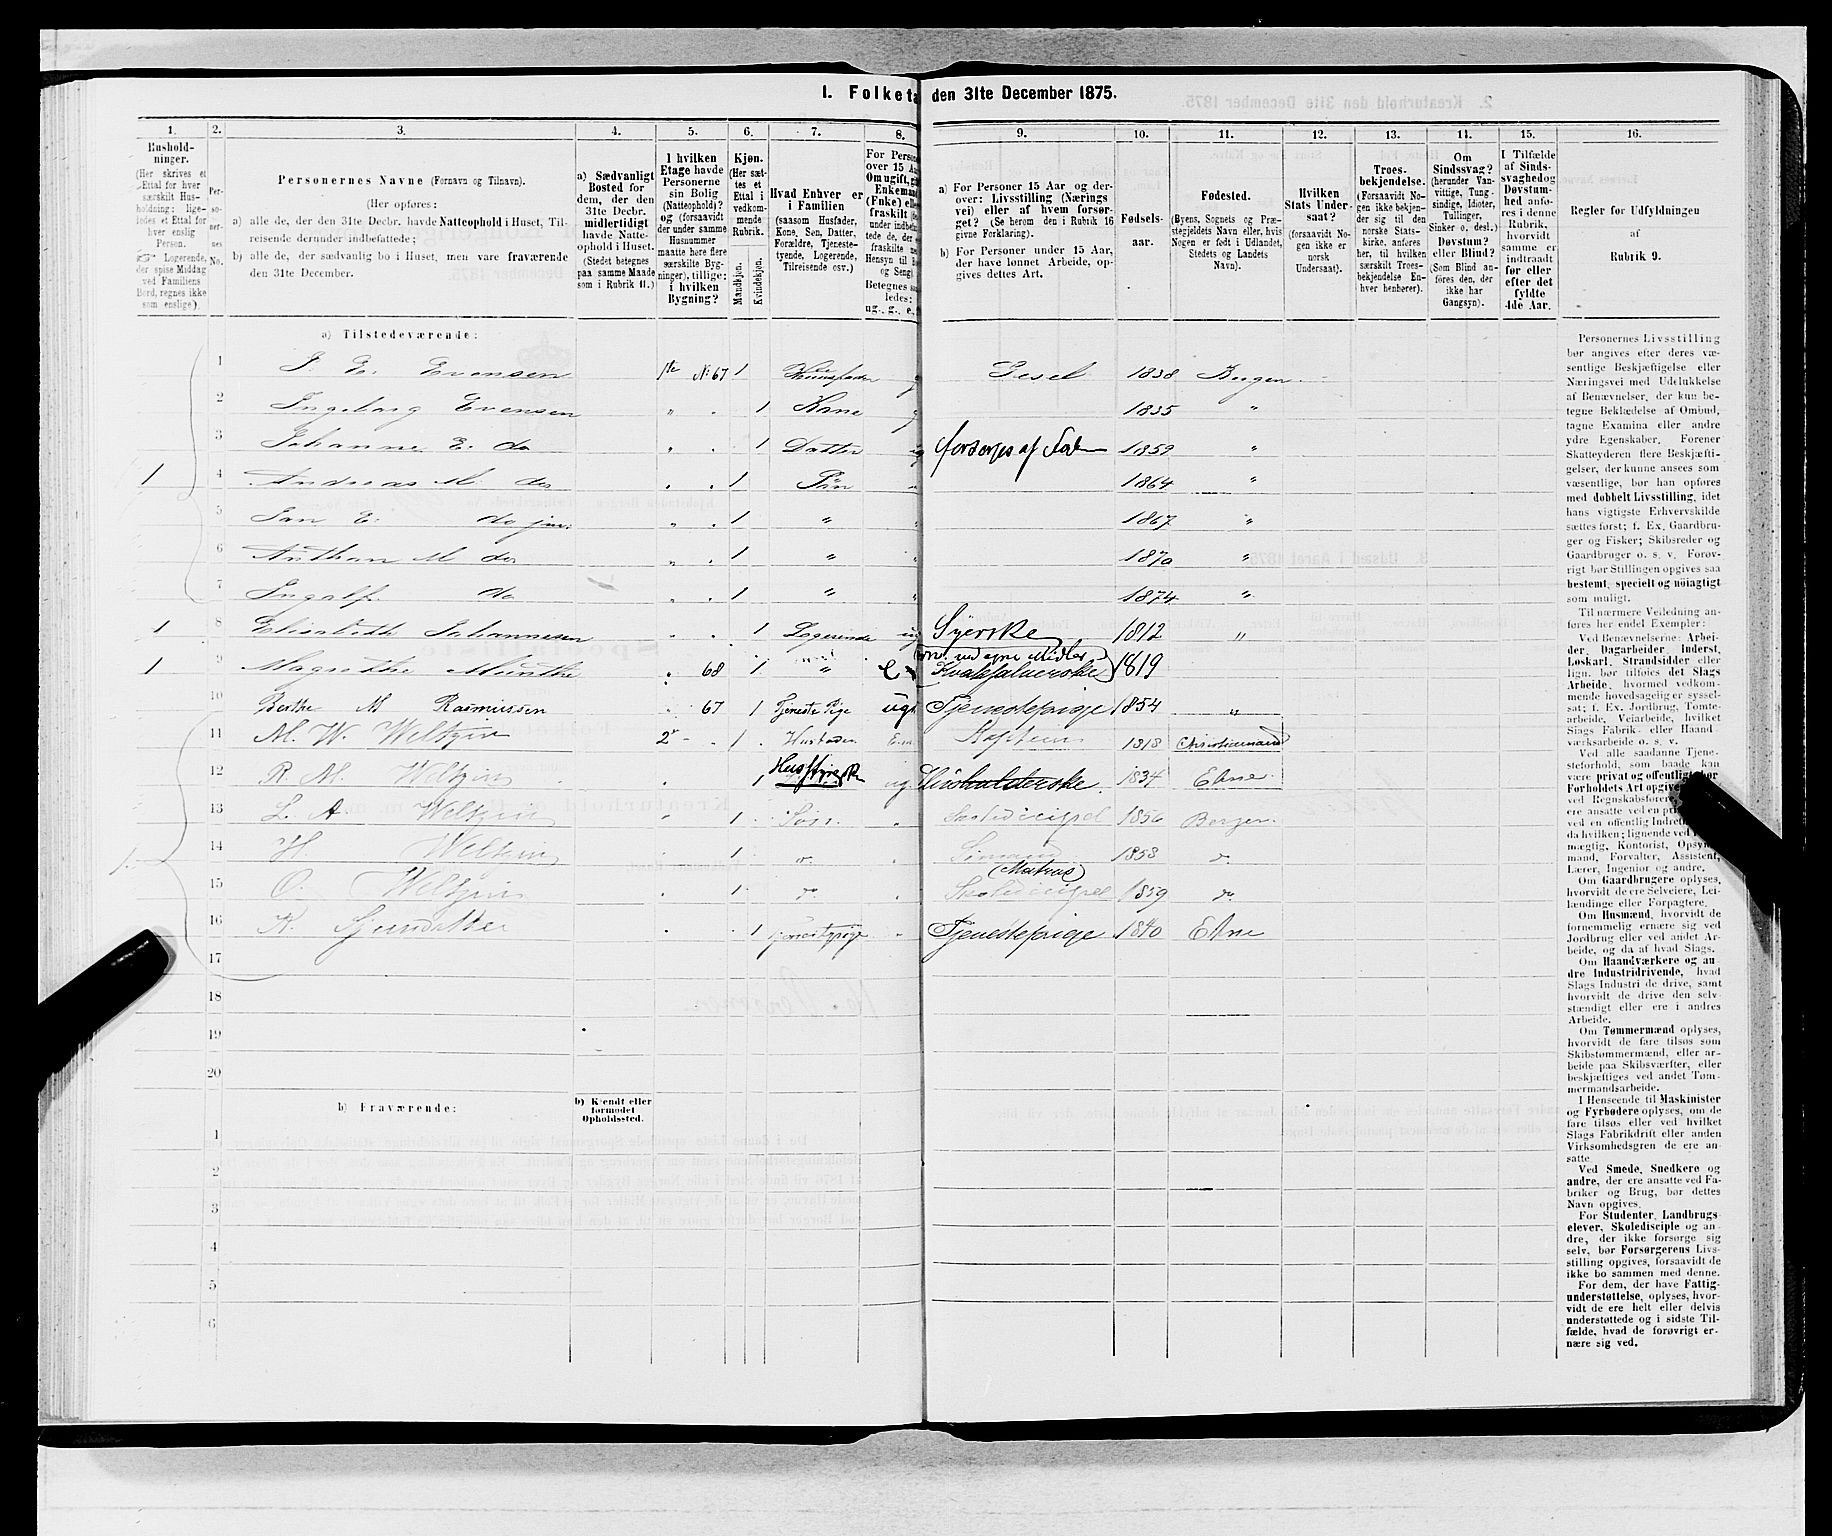 1. Folketæ den 31te December 1875.
1. 2. 3. 4. 5. 6. 7. 8. 9. 10. 11. 12. 13. 14. 15. 16.
Hushold-
ninger.
(Her skrives et
Ettal for hver
særskilt Hus-
holdning: lige-
ledes et Ettal for
hver enslig
Person.
Logerende,
der spise Middag
ved Familiens
Bord, regnes ikke
som enslige.)
Per-
so-
ner-
nes
No.
Personernes Navne (Fornavn og Tilnavn).
(Her opføres:
a) alle de, der den 31te Decbr. havde Natteophold i Huset, Til-
reisende derunder indbefattede;
b) alle de, der sædvanlig bo i Huset, men vare fraværende
den 31te December.
a) Sædvanligt
Bosted for
dem, der den
31te Decbr.
midlertidigt
havde Natte-
ophold i Huset.
(Stedet betegnes
paa samme Maade
som i Rubrik 11.)
I hvilken
Etage havde
Personerne
sin Bolig
(Natteophold)?
og (forsaavidt
der under samme
Husnummer
maatte høre flere
særskilte Byg-
ninger), tillige:
i hvilken
Bygning?
Kjøn.
(Her sæt-
tes et
Ettal i
vedkom-
mende
Rubrik.
Mandkjøn.
Kvindekjøn.
Hvad Enhver er
i Familien
(saasom Husfader,
Kone, Søn, Datter,
Forældre, Tjeneste-
tyende, Logerende,
Tilreisende osv.)
For Person
over 15 Aa
Om ugift, g
Enkemand
(Enke) elle
fraskilt
under indbef
tede de, der e
fraskilte
Hensyn til B
og Seng).
Betegnes s
ledes:
ug., g., e.,
a) For Personer 15 Aar og der-
over: Livsstilling (Nærings
vei) eller af hvem forsør-
get? (Se herom den i Rubrik 16
givne Forklaring).
b) For Personer under 15 Aar,
der have lønnet Arbeide, op-
gives dettes Art.
Fødsels-
aar.
Fødested.
(Byens, Sognets og Præ-
stegjeldets Navn eller, hvis
Nogen er født i Udlandet,
Stedets og Landets
Navn).
Hvilken
Stats Under-
saat?
(forsaavidt No-
gen ikke er
norsk
Undersaat).
Troes-
bekjendelse.
(Forsaavidt No-
gen ikke bekjen-
der sig til den
norske Stats-
kirke, anføres
her, til hvilken
særskilt Troes-
bekjendelse En-
hver henhører).
Om
Sindssvag?
(herunder Van-
vittige, Tung-
sindige, Idioter,
Tullinger,
Sinker o. desl.)
Døvstum?
eller Blind?
(Som Blind an-
føres den, der
ikke har
Gangsyn).
I Tilfælde
af Sinds-
svaghed og
Døvstum-
hed anfø-
res i denne
Rubrik,
hvorvidt
samme er
indtraadt
før eller
efter det
fyldte
4de Aar.
Regler for Udfyldningen
af
Rubrik 9.
a) Tilstedeværende:
1 J. E. Evensen 1te No 67 1 Huusfader g 1838 Bergen
2 Ingeborg Evensen " . 1 Kone g 1835 "
3 Johanne E. do " . 1 Datter ug forsørges af Fad 1859 "
1 4 Andreas M. do " . 1 Søn 1864 "
5 Jan E. do jun. " . 1 " 1867 "
6 Anthon M do " . 1 " 1870 "
7 Ingolf do " . 1 " 1874 "
1 8 Elisabeth Johannesen " . 1 Logerende ug Syerske 1812 "
1 9 Magrethe Munthe " 68 1 " e ved egne Midler 1819
10 Berthe M Rasmussen 67 1 Tjeneste Pige ug Tjenestepige 1854 "
11 M. W. Weltzin 2 . 1 Husfader Em 1818 Christiansand
12 R. M. Weltzin 1 Husstyrske ug Huusholderske 1834 Etne
13 L. A. Weltzin " 1 Søn " Skoledicipel 1856 Bergen
1 14 H. Weltzin 1 do Sømand 1858 do
(Matros)
15 O. Weltzin 1 do Skoledicipel 1859 do
16 K. 1 Tjenestepige " Tjenestepige 1840 Etne
17
18
19
20
b) Fraværende:
b) Kjendt eller
formodet
Opholdssted.
1
2
3
4
5
6
Personernes Livsstilling
bør angives efter deres væ-
sentlige Beskjæftigelse eller
Næringsvei med Udelukkelse
af Benævnelser, der kun be-
tegne Beklædelse af Ombud,
tagne Examina eller andre
ydre Egenskaber. Forener
Skatteyderen flere Beskjæfti-
gelser, der kunne ansees som
væsentlige, bør han opføres
med dobbelt Livsstilling, idet
hans vigtigste Erhvervskilde
sættes først; f. Ex. Gaardbru-
ger og Fisker; Skibsreder og
Gaardbruger o. s. v. Forøv-
rigt bør Stillingen opgives saa
bestemt, specielt og nøiagtigt
som muligt.
Til nærmere Veiledning an-
føres her endel Exempler:
Ved Benævnelserne: Arbei-
der, Dagarbeider, Inderst,
Løskarl, Strandsidder eller
lign. bør tilføies det Slags
Arbeide, hvormed vedkom-
mende hovedsagelig er syssel-
sat; f. Ex. Jordbrug, Tomte-
arbeide, Veiarbeide, hvilket
Slags Fabrik- eller Haand
værksarbeide o. s. v.
Ved alle saadanne Tjene-
stefolk, som baade kan
være privat og offentligt, bør
Forholdets Art opgive
ved Regnskabsføre
ere ansatte ved en pri
ved en offentlig Indret
da hvilken; lignende ved
mægtig, Kontorist, Opsyns-
mand, Forvalter, Assistent,
Lærer, Ingeniør og andre.
Om Gaardbrugere oplyses,
hvorvidt de ere Selveiere, Lei-
lændinge eller Forpagtere.
Om Husmænd, hvorvidt de
fornemmelig ernære sig ved
Jordbrug eller ved andet Ar-
beide, og da af hvad Slags.
Om Haandværkere og an
dre Industridrivende, hvad
Slags Industri de drive, samt
hvorvidt de drive den selv-
stændigt eller ere i andres
Arbeide.
Om Tømmermænd oplyses,
hvorvidt de fare tilsøs som
Skibstømmermænd, eller ar-
beide paa Skibsværfter, eller
beskjæftiges ved andet Tøm-
mermandsarbeide.
I Henseende til Maskinister
og Fyrbødere oplyses, om de
fare tilsøs eller ved hvilket
Slags Fabrikdrift eller anden
Virksomhedsgren de ere an-
satte
Ved Smede, Snedkere og
andre, der ere ansatte ved Fa-
briker og Brug, bør dettes
Navn opgives.
For Studenter, Landbrugs
elever, Skoledisciple og an-
dre, der ikke forsørge sig
selv, bør Forsørgerens Livs-
stilling opgives, forsaavidt de
ikke bo sammen med denne.
For dem, der have Fattig-
understøttelse, oplyses, hvor-
vidt de ere helt eller delvis
understøttede og i sidste Til-
fælde, hvad de forøvrigt er-
nære sig ved.